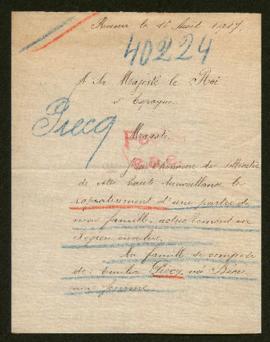 le 1er Avril 1917
40224
A Sa Majesté le Roi
d'Espagne
Precq
Majesté
J'ai l'honneur de solliciter
de votre haute bienveillance le
rapatriement d'une partie de
ma famille, actuellement en
région envahie.
Ma famille se compose
de: Emilie Precq, née
ma femme